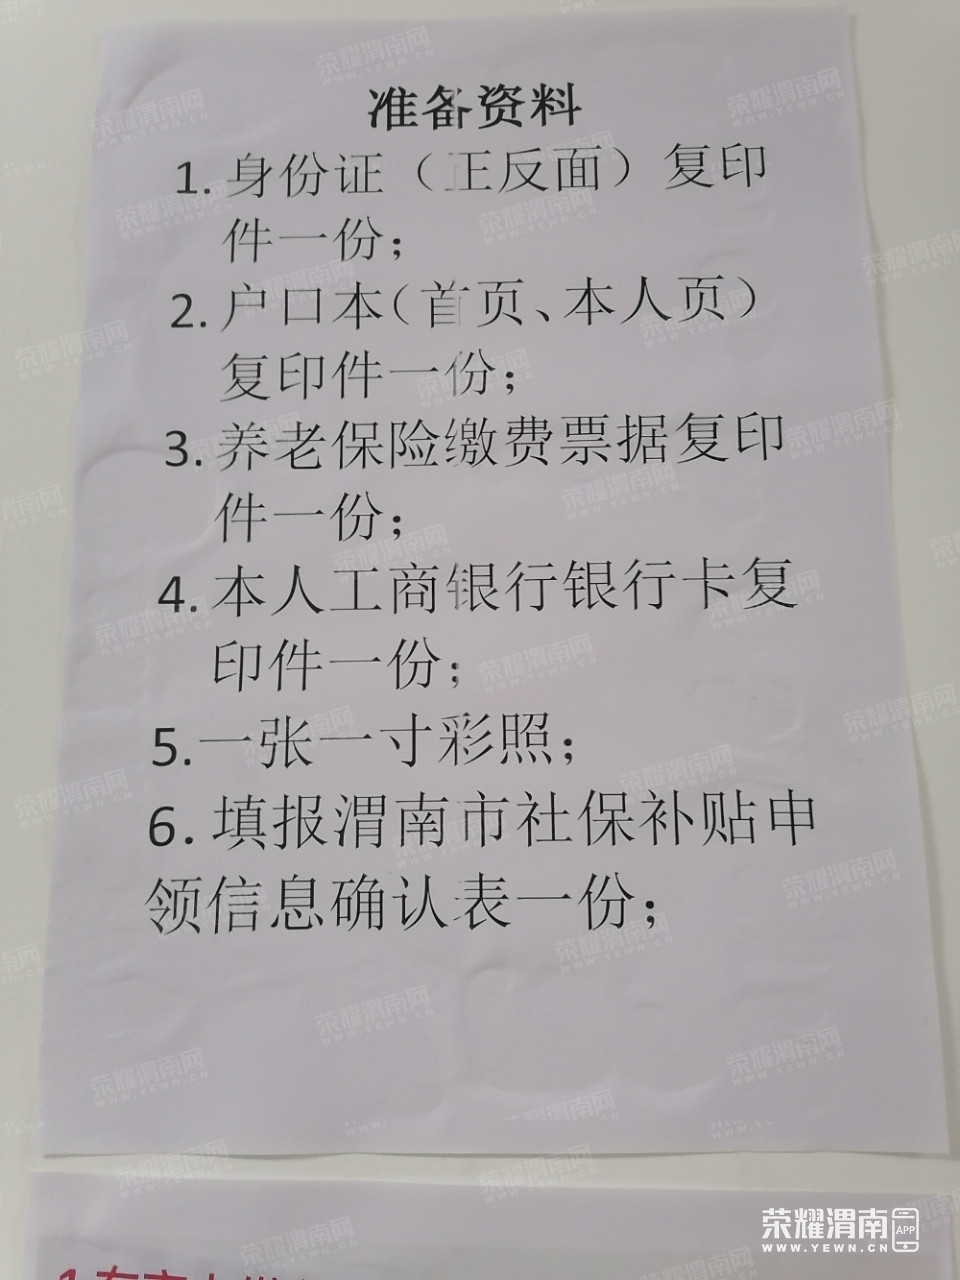 准备资料
1. 身份证（正反面）复印
件一份；
2. 户口本（首页、本人页）
复印件一份；
3. 养老保险缴费票据复印
件一份；
4. 本人工商银行银行卡复
印件一份；
5. 一张一寸彩照；
6. 填报渭南市社保补贴申
领信息确认表一份；
荣耀渭南 APP
WWW.YEWN.CN